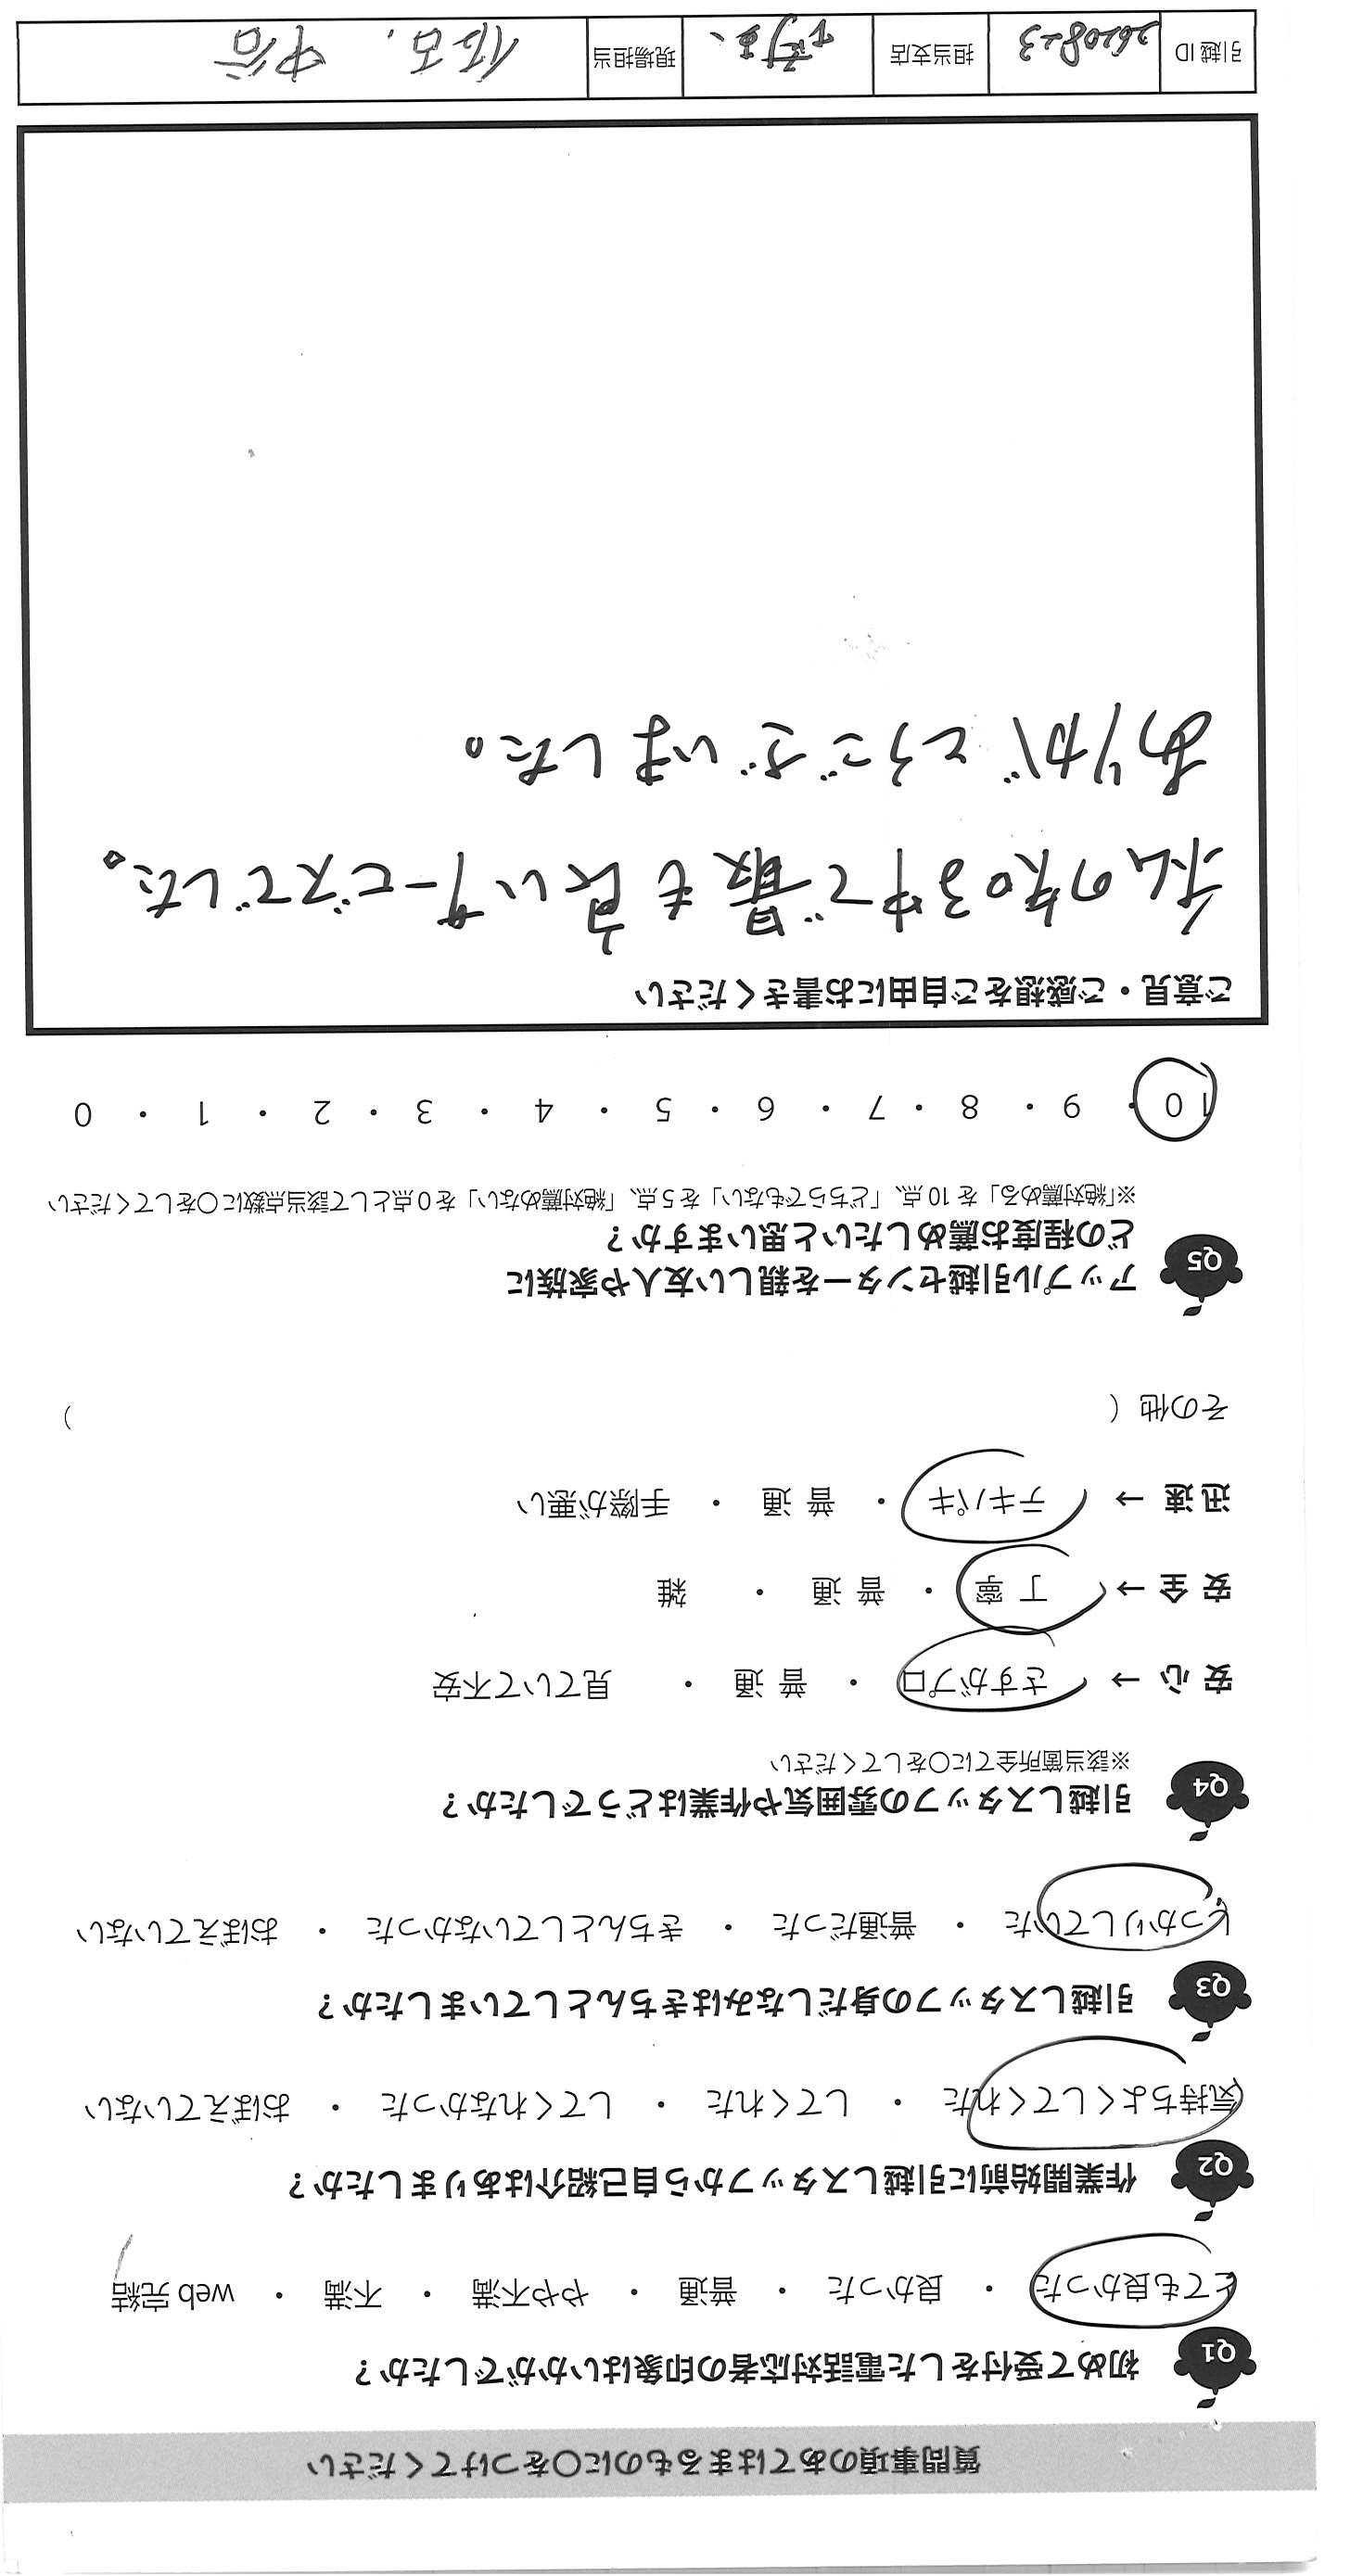 質問事項のあてはまるものに〇をつけてください
Q1 初めて受付をした電話対応者の印象はいかがでしたか？
とても良かった ・ 良かった ・ 普通 ・ やや不満 ・ 不満 ・ web 完結
Q2 作業開始前に引越しスタッフから自己紹介はありましたか？
気持ちよくしてくれた ・ してくれた ・ してくれなかった ・ おぼえていない
Q3 引越しスタッフの身だしなみはきちんとしていましたか？
しっかりしていた ・ 普通だった ・ きちんとしていなかった ・ おぼえていない
Q4 引越しスタッフの雰囲気や作業はどうでしたか？
※該当箇所全てに〇をしてください
安心 → さすがプロ ・ 普通 ・ 見ていて不安
安全 → 丁寧 ・ 普通 ・ 雑
迅速 → テキパキ ・ 普通 ・ 手際が悪い
その他（ ）
Q5 アップル引越センターを親しい友人や家族に
どの程度お薦めしたいと思いますか？
※「絶対薦める」を 10 点、「どちらでもない」を 5 点、「絶対薦めない」を 0 点として該当点数に〇をしてください
10 ・ 9 ・ 8 ・ 7 ・ 6 ・ 5 ・ 4 ・ 3 ・ 2 ・ 1 ・ 0
ご意見・ご感想をご自由にお書きください
私の知る中で最も良いサービスでした。
ありがとうございました。
引越 ID 担当支店 現場担当 中谷